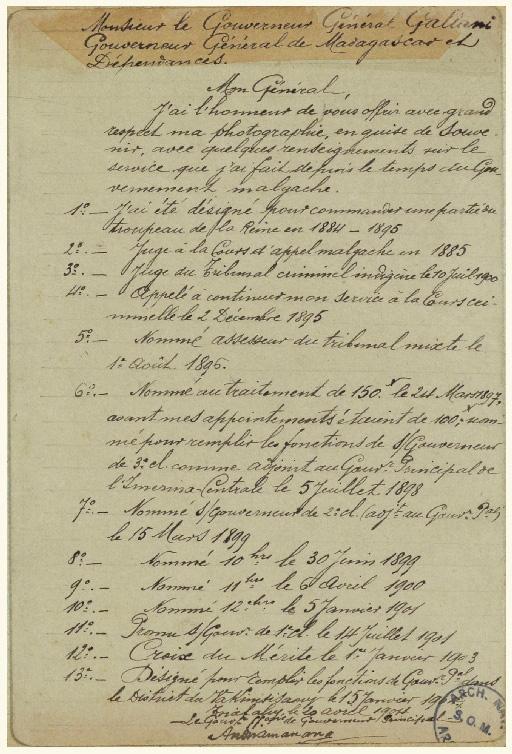 Monsieur le Gouverneur Général Galiéni
Gouverneur Général de Madagascar et
Dépendances.
Mon Général,
J'ai l'honneur de vous offrir avec grand
respect ma photographie, en guise de Souve-
nir, avec quelques renseignements sur le
service que j'ai fait depuis le temps du Gou-
vernement malgache.
1º.— J'ai été désigné pour commander une partie du
troupeau de la Reine en 1884 – 1895
2º.— Juge à la Cours d'appel malgache en 1885
3º.— Juge du Tribunal criminel indigène le 10 Juil. 1900
4º.— Appelé à continuer mon service à la Cours cri-
minelle le 2 Décembre 1895
5º.— Nommé assesseur du tribunal mixte le
1er Août 1896.
6º.— Nommé au traitement de 150.x le 24 Mars 1897,
avant mes appointements étaient de 100.x nom-
mé pour remplir les fonctions de s/Gouverneur
de 3e. cl. comme adjoint au Gouvr. Principal de
l'Imerina-Centrale le 5 Juillet 1898
7º.— Nommé S/Gouverneur de 2e. cl. (adjt. au Gouvr. Pal)
le 15 Mars 1899
8º.— Nommé 10 hrs le 30 Juin 1899
9º.— Nommé 11 hrs le 6 Avril 1900
10º.— Nommé 12 le 5 Janvier 1901
11º.— Promu S/Gouvr. de 1e. cl. le 14 Juillet 1901
12º.— Croix du Mérite le 1er Janvier 1903
13º.— Désigné pour remplir les fonctions de Gouvr. Pal. dans
le District du Vakinisisaony le 15 Janvier
le 20 avril
Le Gouvr. de Gouverneur Principal
ARCH. NAT.
S.O.M.